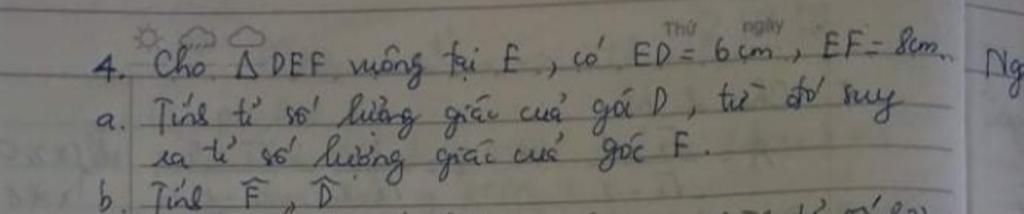 Thứ ngày
4. Cho Δ DEF vuông tại E, có ED = 6cm, EF = 8cm. Ng
a. Tính tỉ số lượng giác của góc D, từ đó suy
ra tỉ số lượng giác của góc F.
b. Tính F̂, D̂